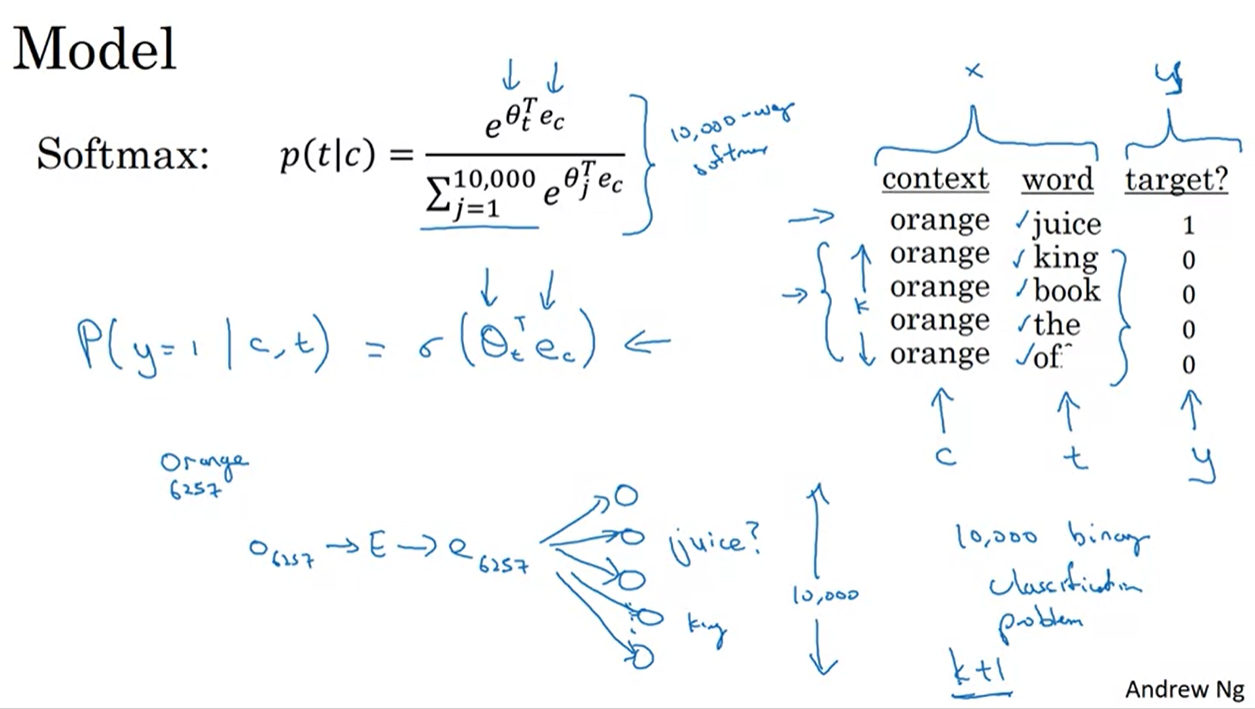 Model
Softmax: p(t|c) = e^{θ_t^T e_c} / ∑_{j=1}^{10,000} e^{θ_j^T e_c}
10,000-way
softmax
x y
context word target?
orange ✓juice 1
orange ✓king 0
orange ✓book 0
orange ✓the 0
orange ✓of 0
k
c t y
P(y=1 | c,t) = σ(θ_t^T e_c) ←
Orange
6257
O_6257 → E → e_6257
juice?
king
10,000
10,000 binary
classification
problem
k+1
Andrew Ng